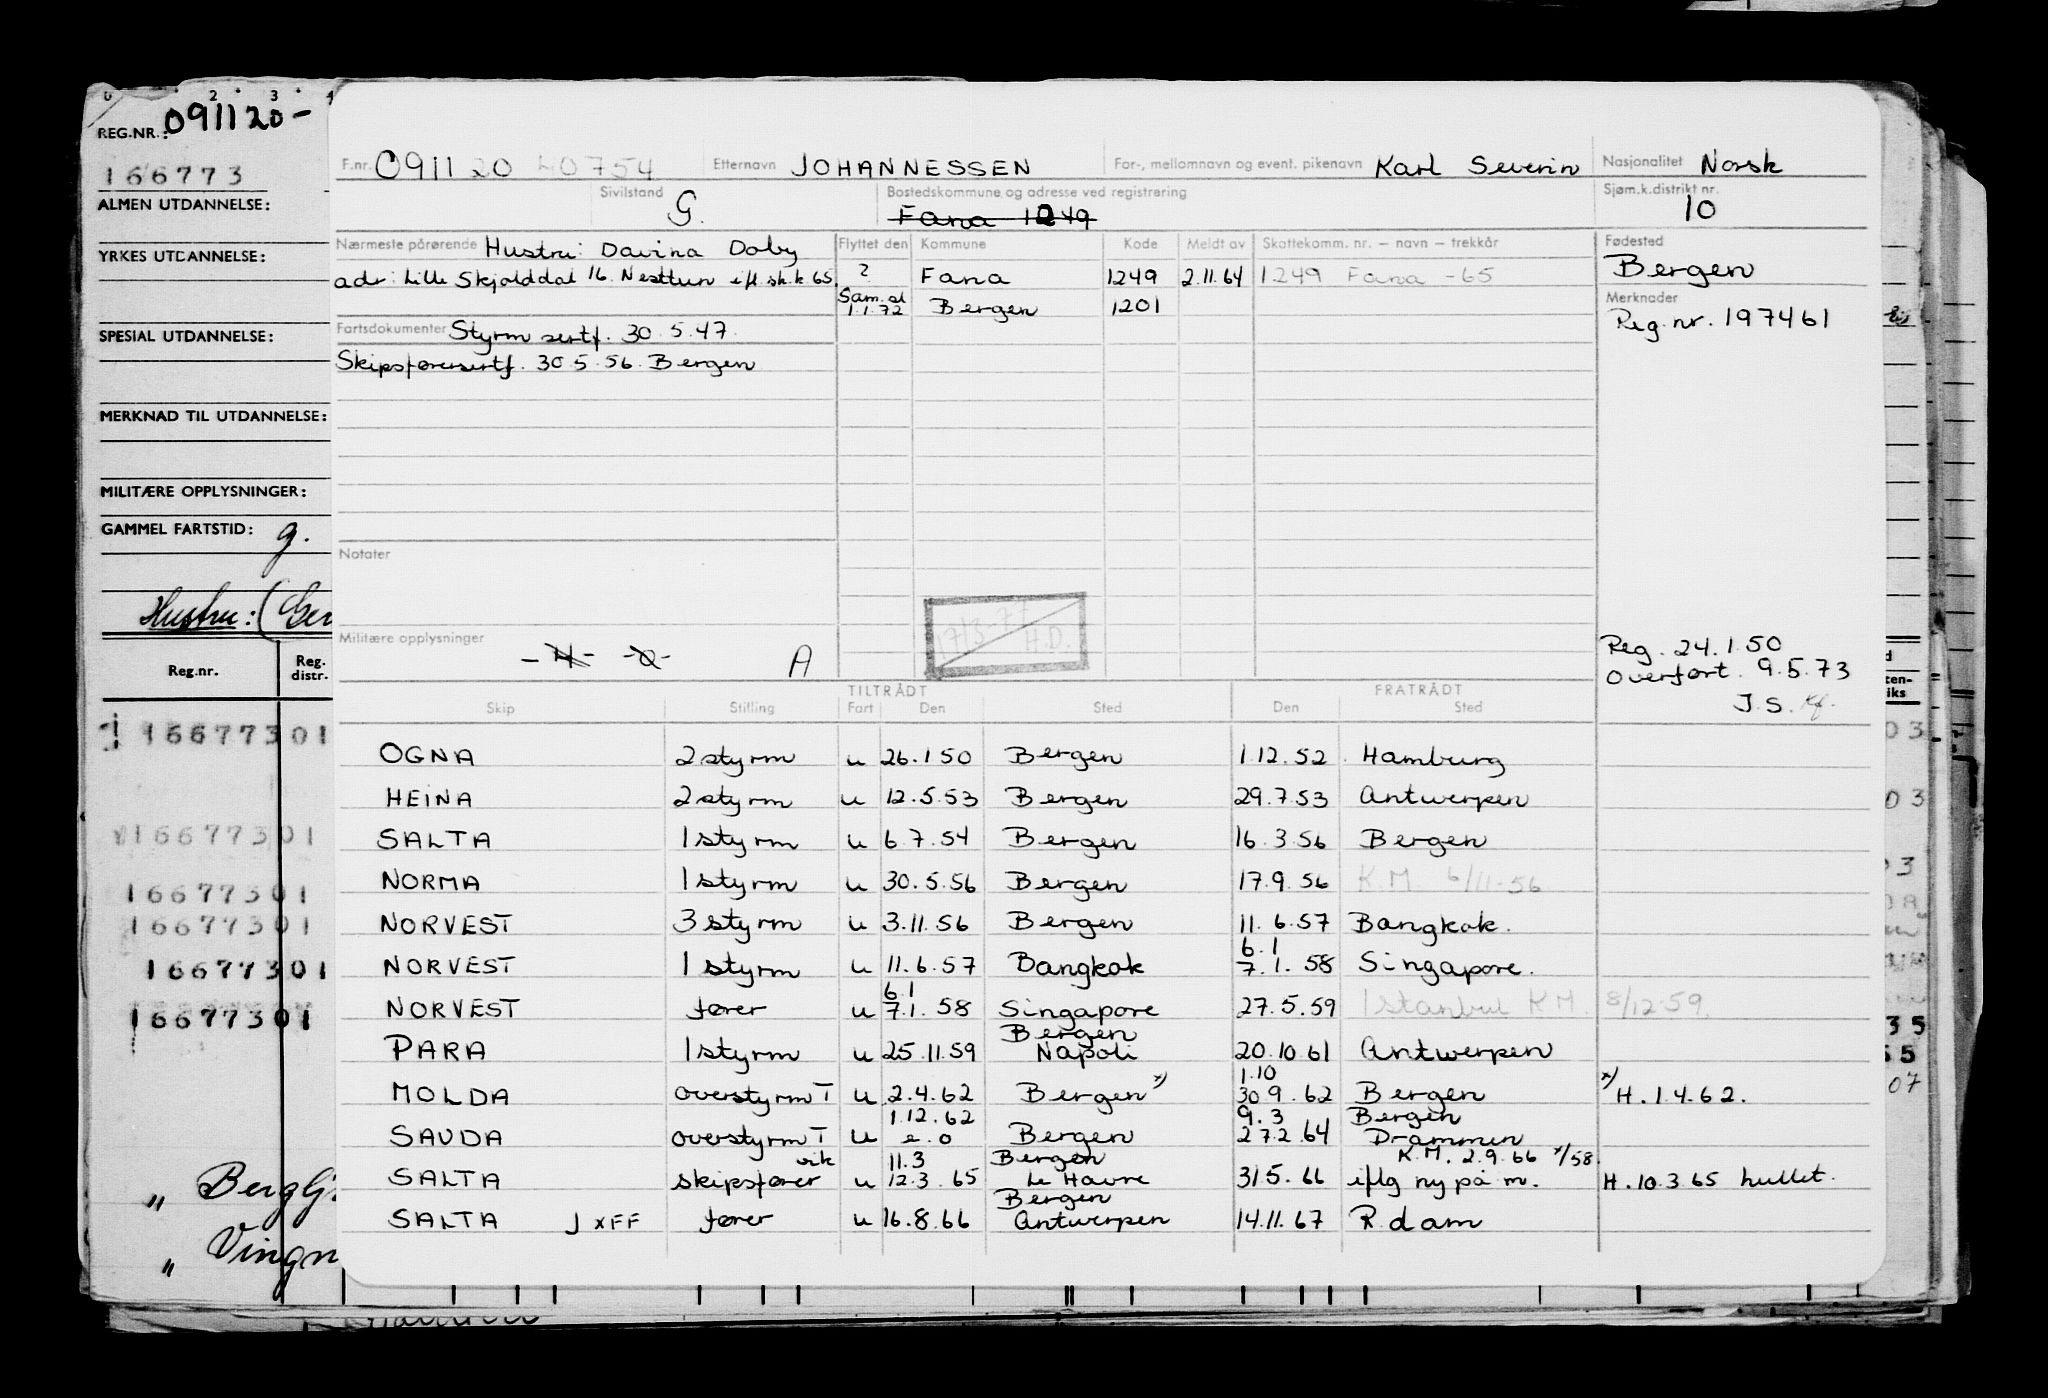 0 2 3 4
REG.NR.: 091120-
166773
ALMEN UTDANNELSE:
YRKES UTDANNELSE:
SPESIAL UTDANNELSE:
MERKNAD TIL UTDANNELSE:
MILITÆRE OPPLYSNINGER:
GAMMEL FARTSTID: g.
Hustru: (Ger
Reg.nr. Reg. distr.
16677301
16677301
16677301
16677301
16677301
16677301
„ Berglj.
„ Vingn
F.nr. 091120 40754 Etternavn JOHANNESSEN For-, mellomnavn og event. pikenavn Karl Severin Nasjonalitet Norsk
Sivilstand G. Bostedskommune og adresse ved registrering Fana 1249 Sjøm.k.distrikt nr. 10
Nærmeste pårørende Hustru: Davina Doby Flyttet den Kommune Kode Meldt av Skattekomm. nr. – navn – trekkår Fødested
adr: Lille Skjolddal 16. Nesttun ifl sk.k 65. ? Fana 1249 2.11.64 1249 Fana -65 Bergen
Sam.sl 1.1.72 Bergen 1201 Merknader
Reg.nr. 197461
Fartsdokumenter Styrm sertf. 30.5.47.
Skipsførersertf. 30.5.56. Bergen
Notater
17/3-77 H.D.
Militære opplysninger -H- -0- A
Reg. 24.1.50
Overført. 9.5.73
J.S. Kf.
TILTRÅDT FRATRÅDT
Skip Stilling Fart Den Sted Den Sted
OGNA 2 styrm u 26.1 50 Bergen 1.12.52 Hamburg
HEINA 2 styrm u 12.5.53 Bergen 29.7.53 Antwerpen
SALTA 1 styrm u 6.7.54 Bergen 16.3.56 Bergen
NORMA 1 styrm u 30.5.56 Bergen 17.9.56 K.M. 6/11-56
NORVEST 3 styrm u 3.11.56 Bergen 11.6.57 Bangkok.
6.1
NORVEST 1 styrm u 11.6.57 Bangkok 7.1.58 Singapore.
6.1
NORVEST fører u 7.1.58 Singapore 27.5.59 Istanbul K.M. 8/12-59.
Bergen
PARA 1 styrm u 25.11.59 Napoli 20.10.61 Antwerpen
1.10
MOLDA overstyrm T u 2.4.62 Bergen x) 30 9.62 Bergen x) H.1.4.62.
1.12.62 9.3 Bergen
SAUDA overstyrm T u e.o Bergen 27.2.64 Drammen
vik 11.3 Bergen K.M. 2.9.66 x/58.
SALTA skipsfører u 12.3.65 Le Havre 31.5.66 iflg ny på m. H.10.3.65 hullet.
Bergen
SALTA JXFF fører u 16.8.66 Antwerpen 14.11.67 R.dam